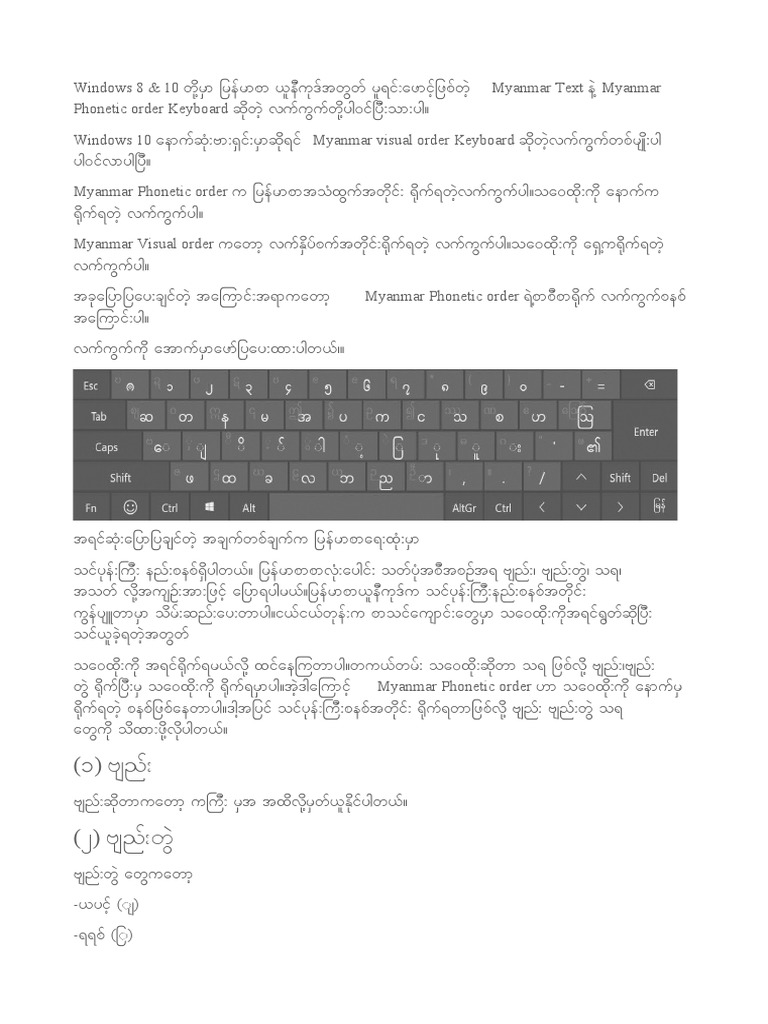 Windows 8 & 10 တို့မှာ မြန်မာစာ ယူနီကုဒ်အတွတ် မူရင်းဖောင့်ဖြစ်တဲ့ Myanmar Text နဲ့ Myanmar
Phonetic order Keyboard ဆိုတဲ့ လက်ကွက်တို့ပါဝင်ပြီးသားပါ။
Windows 10 နောက်ဆုံးဗားရှင်းမှာဆိုရင် Myanmar visual order Keyboard ဆိုတဲ့လက်ကွက်တစ်မျိုးပါ
ပါဝင်လာပါပြီ။
Myanmar Phonetic order က မြန်မာစာအသံထွက်အတိုင်း ရိုက်ရတဲ့လက်ကွက်ပါ။သဝေထိုးကို နောက်က
ရိုက်ရတဲ့ လက်ကွက်ပါ။
Myanmar Visual order ကတော့ လက်နှိပ်စက်အတိုင်းရိုက်ရတဲ့ လက်ကွက်ပါ။သဝေထိုးကို ရှေ့ကရိုက်ရတဲ့
လက်ကွက်ပါ။
အခုပြောပြပေးချင်တဲ့ အကြောင်းအရာကတော့ Myanmar Phonetic order ရဲ့စာစီစာရိုက် လက်ကွက်စနစ်
အကြောင်းပါ။
လက်ကွက်ကို အောက်မှာဖော်ပြပေးထားပါတယ်။
Esc ၈ ၁ ၂ ၃ ၄ ၅ ၆ ၇ ၈ ၉ ၀ - =
Tab ဆ တ န မ အ ပ က င သ စ ဟ ဩ Enter
Caps ေ ျ ိ ် ါ ့ ြ ု ူ း ' ၏
Shift ဖ ထ ခ လ ဘ ည ာ , . / Shift Del
Fn Ctrl Alt AltGr Ctrl မြန်
အရင်ဆုံးပြောပြချင်တဲ့ အချက်တစ်ချက်က မြန်မာစာရေးထုံးမှာ
သင်ပုန်းကြီး နည်းစနစ်ရှိပါတယ်။ မြန်မာစာစာလုံးပေါင်း သတ်ပုံအစီအစဉ်အရ ဗျည်း၊ ဗျည်းတွဲ၊ သရ၊
အသတ် လို့အကျဉ်းအားဖြင့် ပြောရပါမယ်။မြန်မာစာယူနီကုဒ်က သင်ပုန်းကြီးနည်းစနစ်အတိုင်း
ကွန်ပျူတာမှာ သိမ်းဆည်းပေးတာပါ။ငယ်ငယ်တုန်းက စာသင်ကျောင်းတွေမှာ သဝေထိုးကိုအရင်ရွတ်ဆိုပြီး
သင်ယူခဲ့ရတဲ့အတွတ်
သဝေထိုးကို အရင်ရိုက်ရမယ်လို့ ထင်နေကြတာပါ။တကယ်တမ်း သဝေထိုးဆိုတာ သရ ဖြစ်လို့ ဗျည်း၊ဗျည်း
တွဲ ရိုက်ပြီးမှ သဝေထိုးကို ရိုက်ရမှာပါ။အဲ့ဒါကြောင့် Myanmar Phonetic order ဟာ သဝေထိုးကို နောက်မှ
ရိုက်ရတဲ့ စနစ်ဖြစ်နေတာပါ။ဒါ့အပြင် သင်ပုန်းကြီးစနစ်အတိုင်း ရိုက်ရတာဖြစ်လို့ ဗျည်း ဗျည်းတွဲ သရ
တွေကို သိထားဖို့လိုပါတယ်။
(၁) ဗျည်း
ဗျည်းဆိုတာကတော့ ကကြီး မှအ အထိလို့မှတ်ယူနိုင်ပါတယ်။
(၂) ဗျည်းတွဲ
ဗျည်းတွဲ တွေကတော့
-ယပင့် (ျ)
-ရရစ် (ြ)